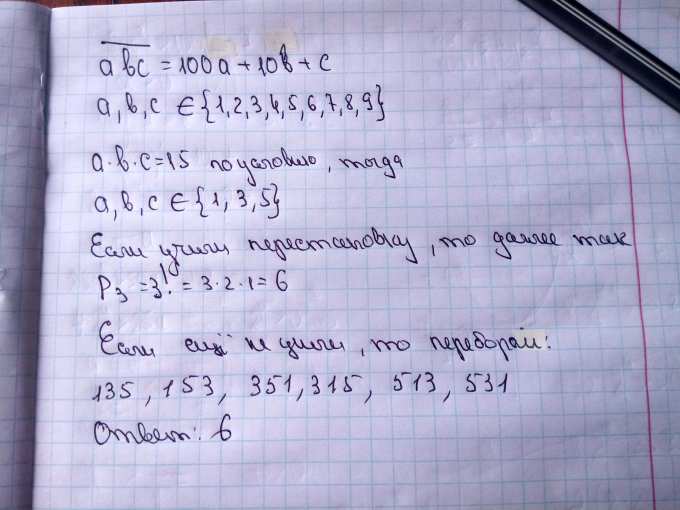 abc = 100a + 10b + c
a, b, c ∈ {1, 2, 3, 4, 5, 6, 7, 8, 9}
a·b·c = 15 по условию, тогда
a, b, c ∈ {1, 3, 5}
Если учили перестановку, то далее так
P₃ = 3! = 3·2·1 = 6
Если ещё не учили, то перебором:
135, 153, 351, 315, 513, 531
Ответ: 6